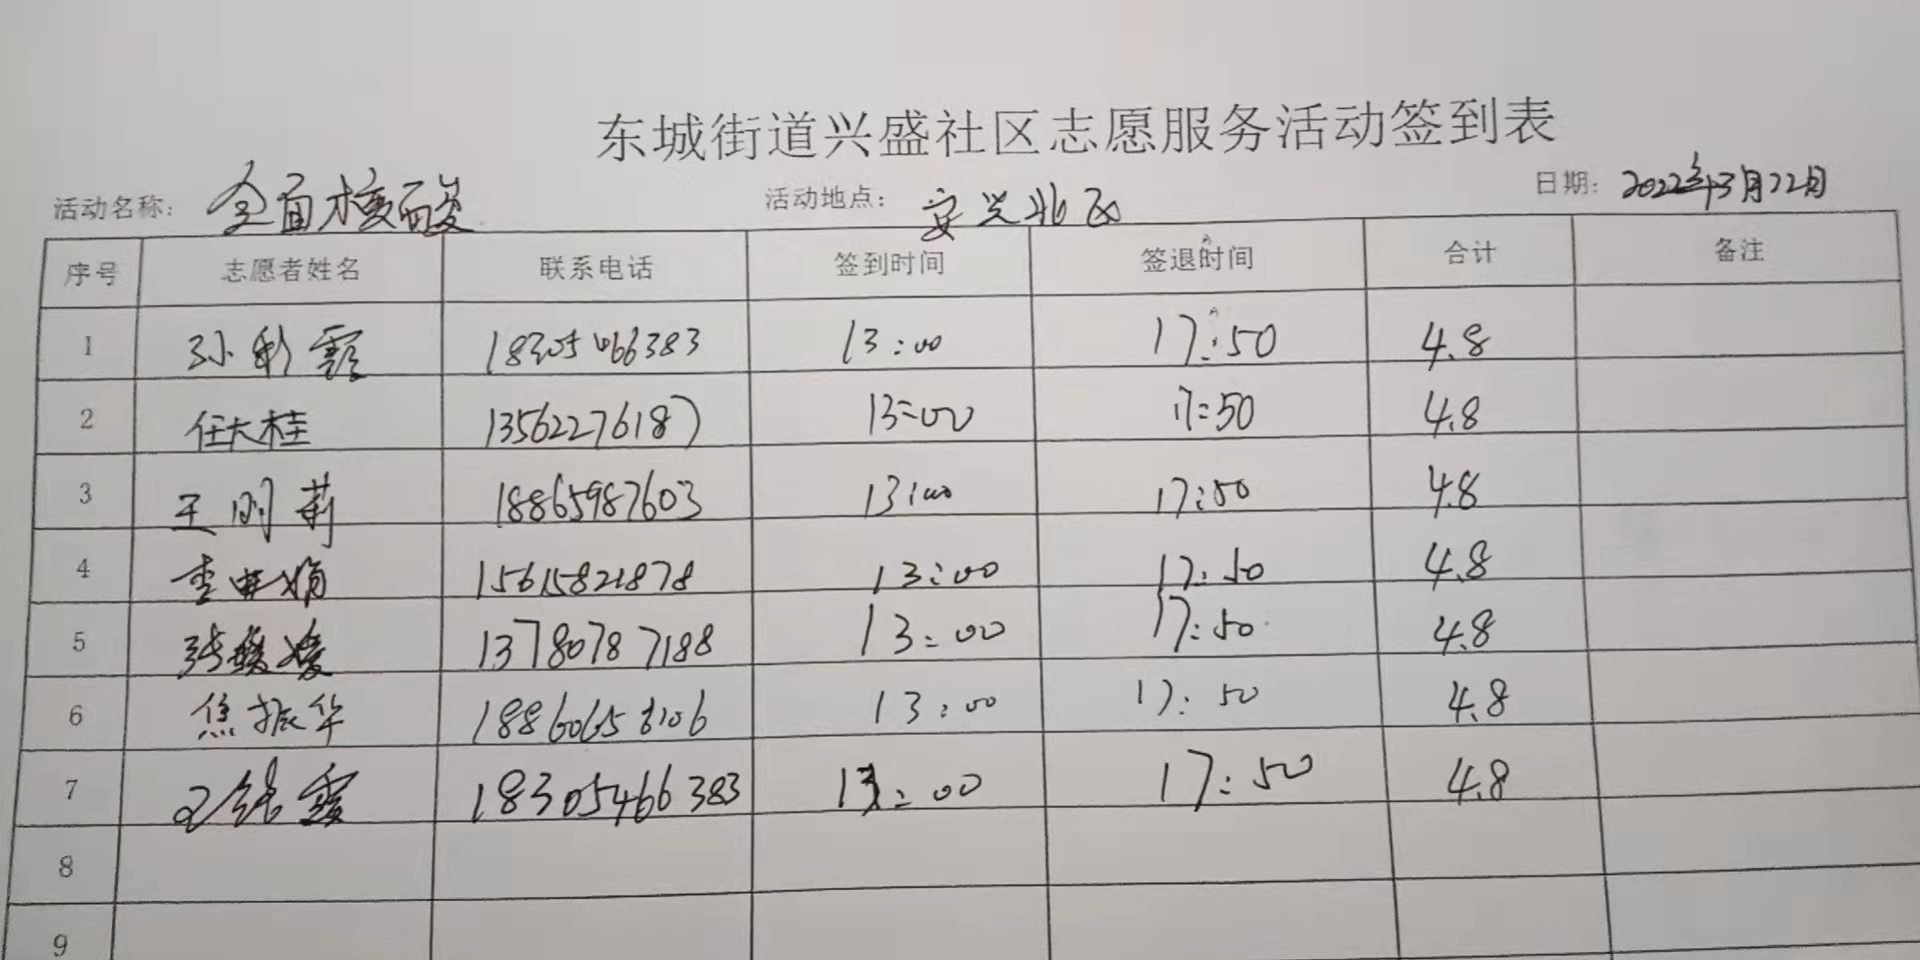 东城街道兴盛社区志愿服务活动签到表
活动名称: 全面核酸 活动地点: 安兴北区 日期: 2022年3月22日
序号 志愿者姓名 联系电话 签到时间 签退时间 合计 备注
1 孙彩霞 18305466383 13:00 17:50 4.8
2 任大桂 13562276187 13:00 17:50 4.8
3 王明莉 18865987603 13:00 17:50 4.8
4 李典娟 15615821878 13:00 17:50 4.8
5 张媛媛 13780787188 13:00 17:50 4.8
6 焦振华 13:00 17:50 4.8
7 18305466383 13:00 17:50 4.8
8
9